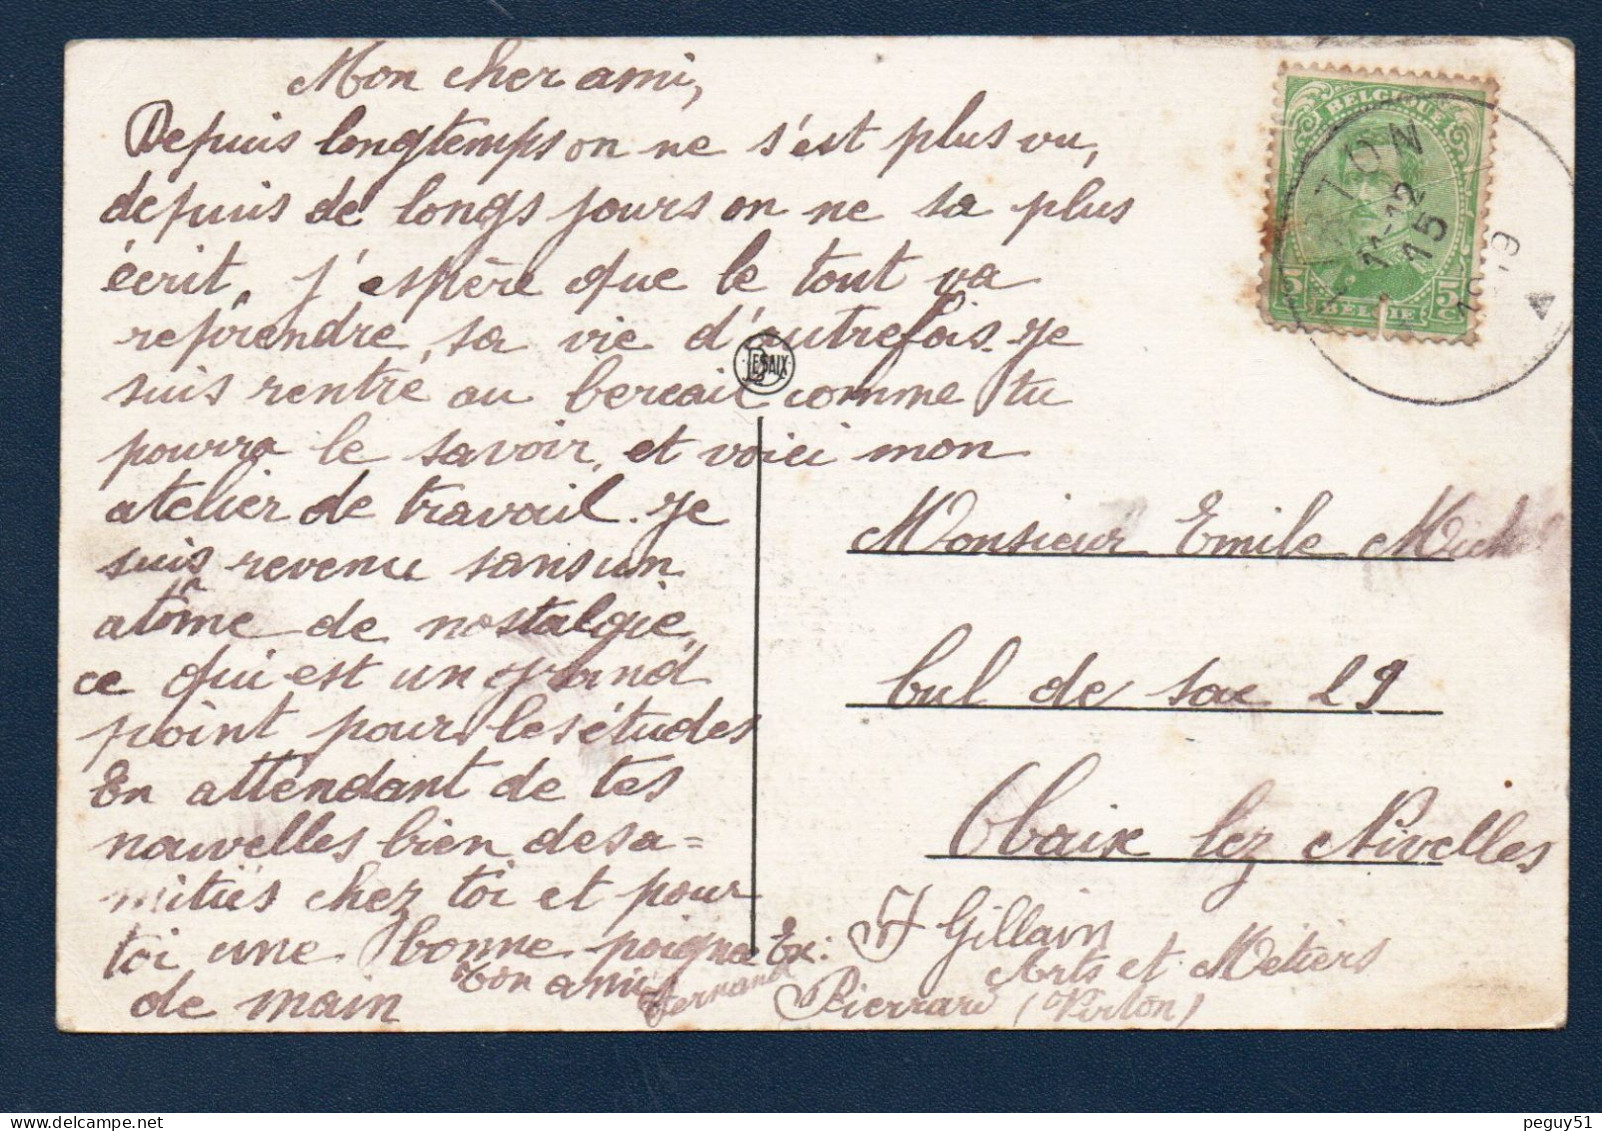 Mon cher ami,
Depuis longtemps on ne s'est plus vu,
depuis de longs jours on ne sa plus
écrit, j'espère que le tout va
reprendre, sa vie d'autrefois. Je
suis rentré au bercail comme tu
pourra le savoir, et voici mon
atelier de travail. Je
suis revenu sans un
atôme de nostalgie,
ce qui est un grand
point pour les études
En attendant de tes
nouvelles bien desa=
mitiés chez toi et pour
toi une bonne poigne
de main Ton ami
Fernand
DESAIX
BELGIQUE
5 c BELGIË 5 c
VIRTON
11-12
15
A
Monsieur Emile
bul de sac 29
Obaix lez Nivelles
Ex: F Gillain
Arts et Métiers
Pierrard (Virton)
peguy51